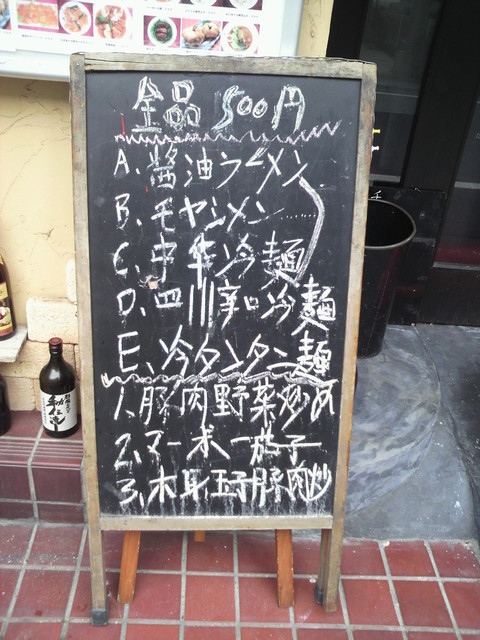 全品 500円
A. 醤油ラーメン
B. モヤシメン
C. 中華冷麺
D. 四川辛口冷麺
E. 冷タンタン麺
1. 豚肉野菜炒め
2. マーボー茄子
3. 木身玉子豚肉炒